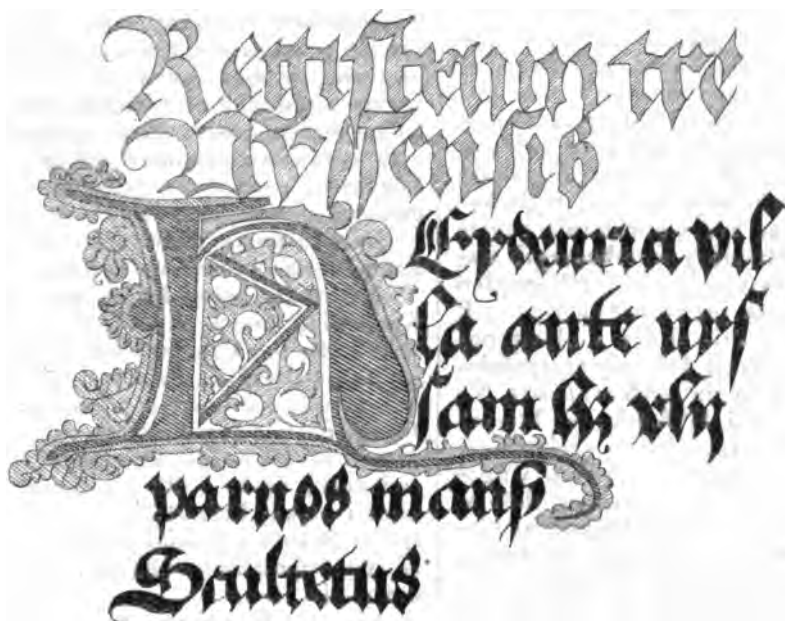 Registrum tre
Nyssensis
HEydenria vil
la ante nys
sam hz xlij
paruos mans
Scultetus